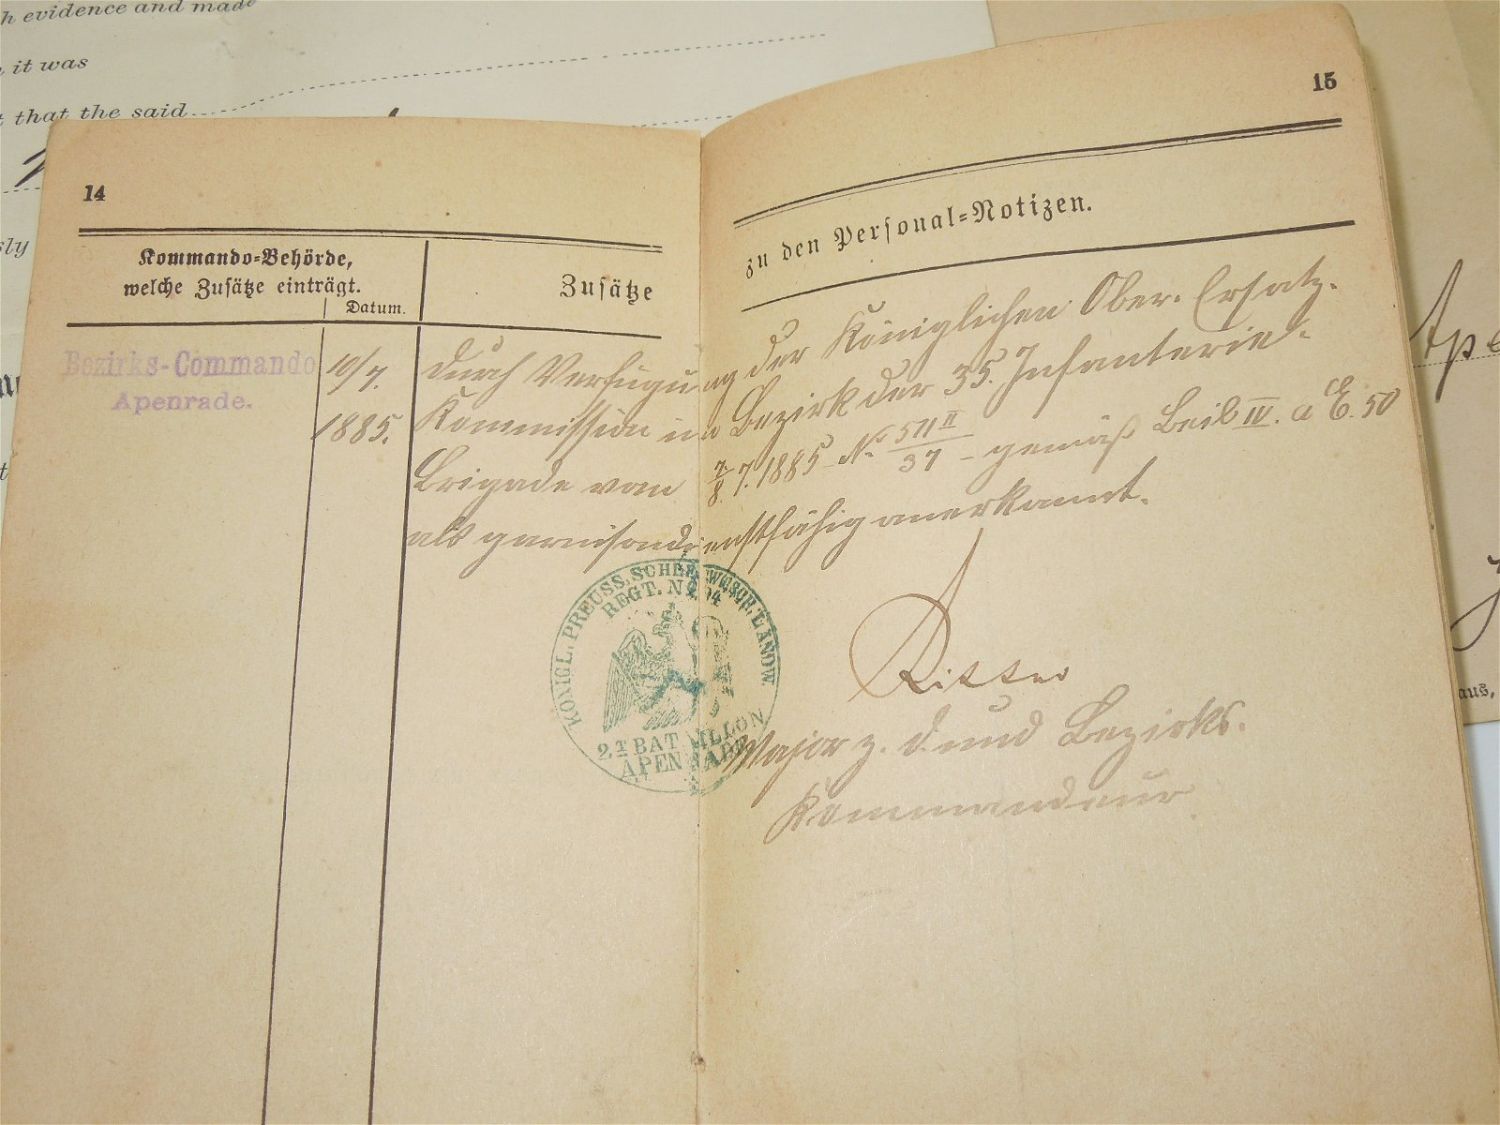 h evidence and made
it was
that the said
14
15
Kommando-Behörde,
welche Zusätze einträgt.
Datum.
Zusätze
zu den Personal-Notizen.
Bezirks-Commando
Apenrade.
10/7.
1885.
Durch Verfügung der Königlichen Ober-Ersatz-
Kommission im Bezirk der 35. Infanterie-
Brigade vom 7/8. 7. 1885 No 511 II/37 - gemäß Beil IV. a E. 50
als garnisondienstfähig anerkannt.
KÖNIGL. PREUSS. SCHLESWIGSCH. LANDW.
REGT. No 84
2T BATAILLON
APENRADE
Ritter
Major z. D. und Bezirks-
Kommandeur
Ape
aus,